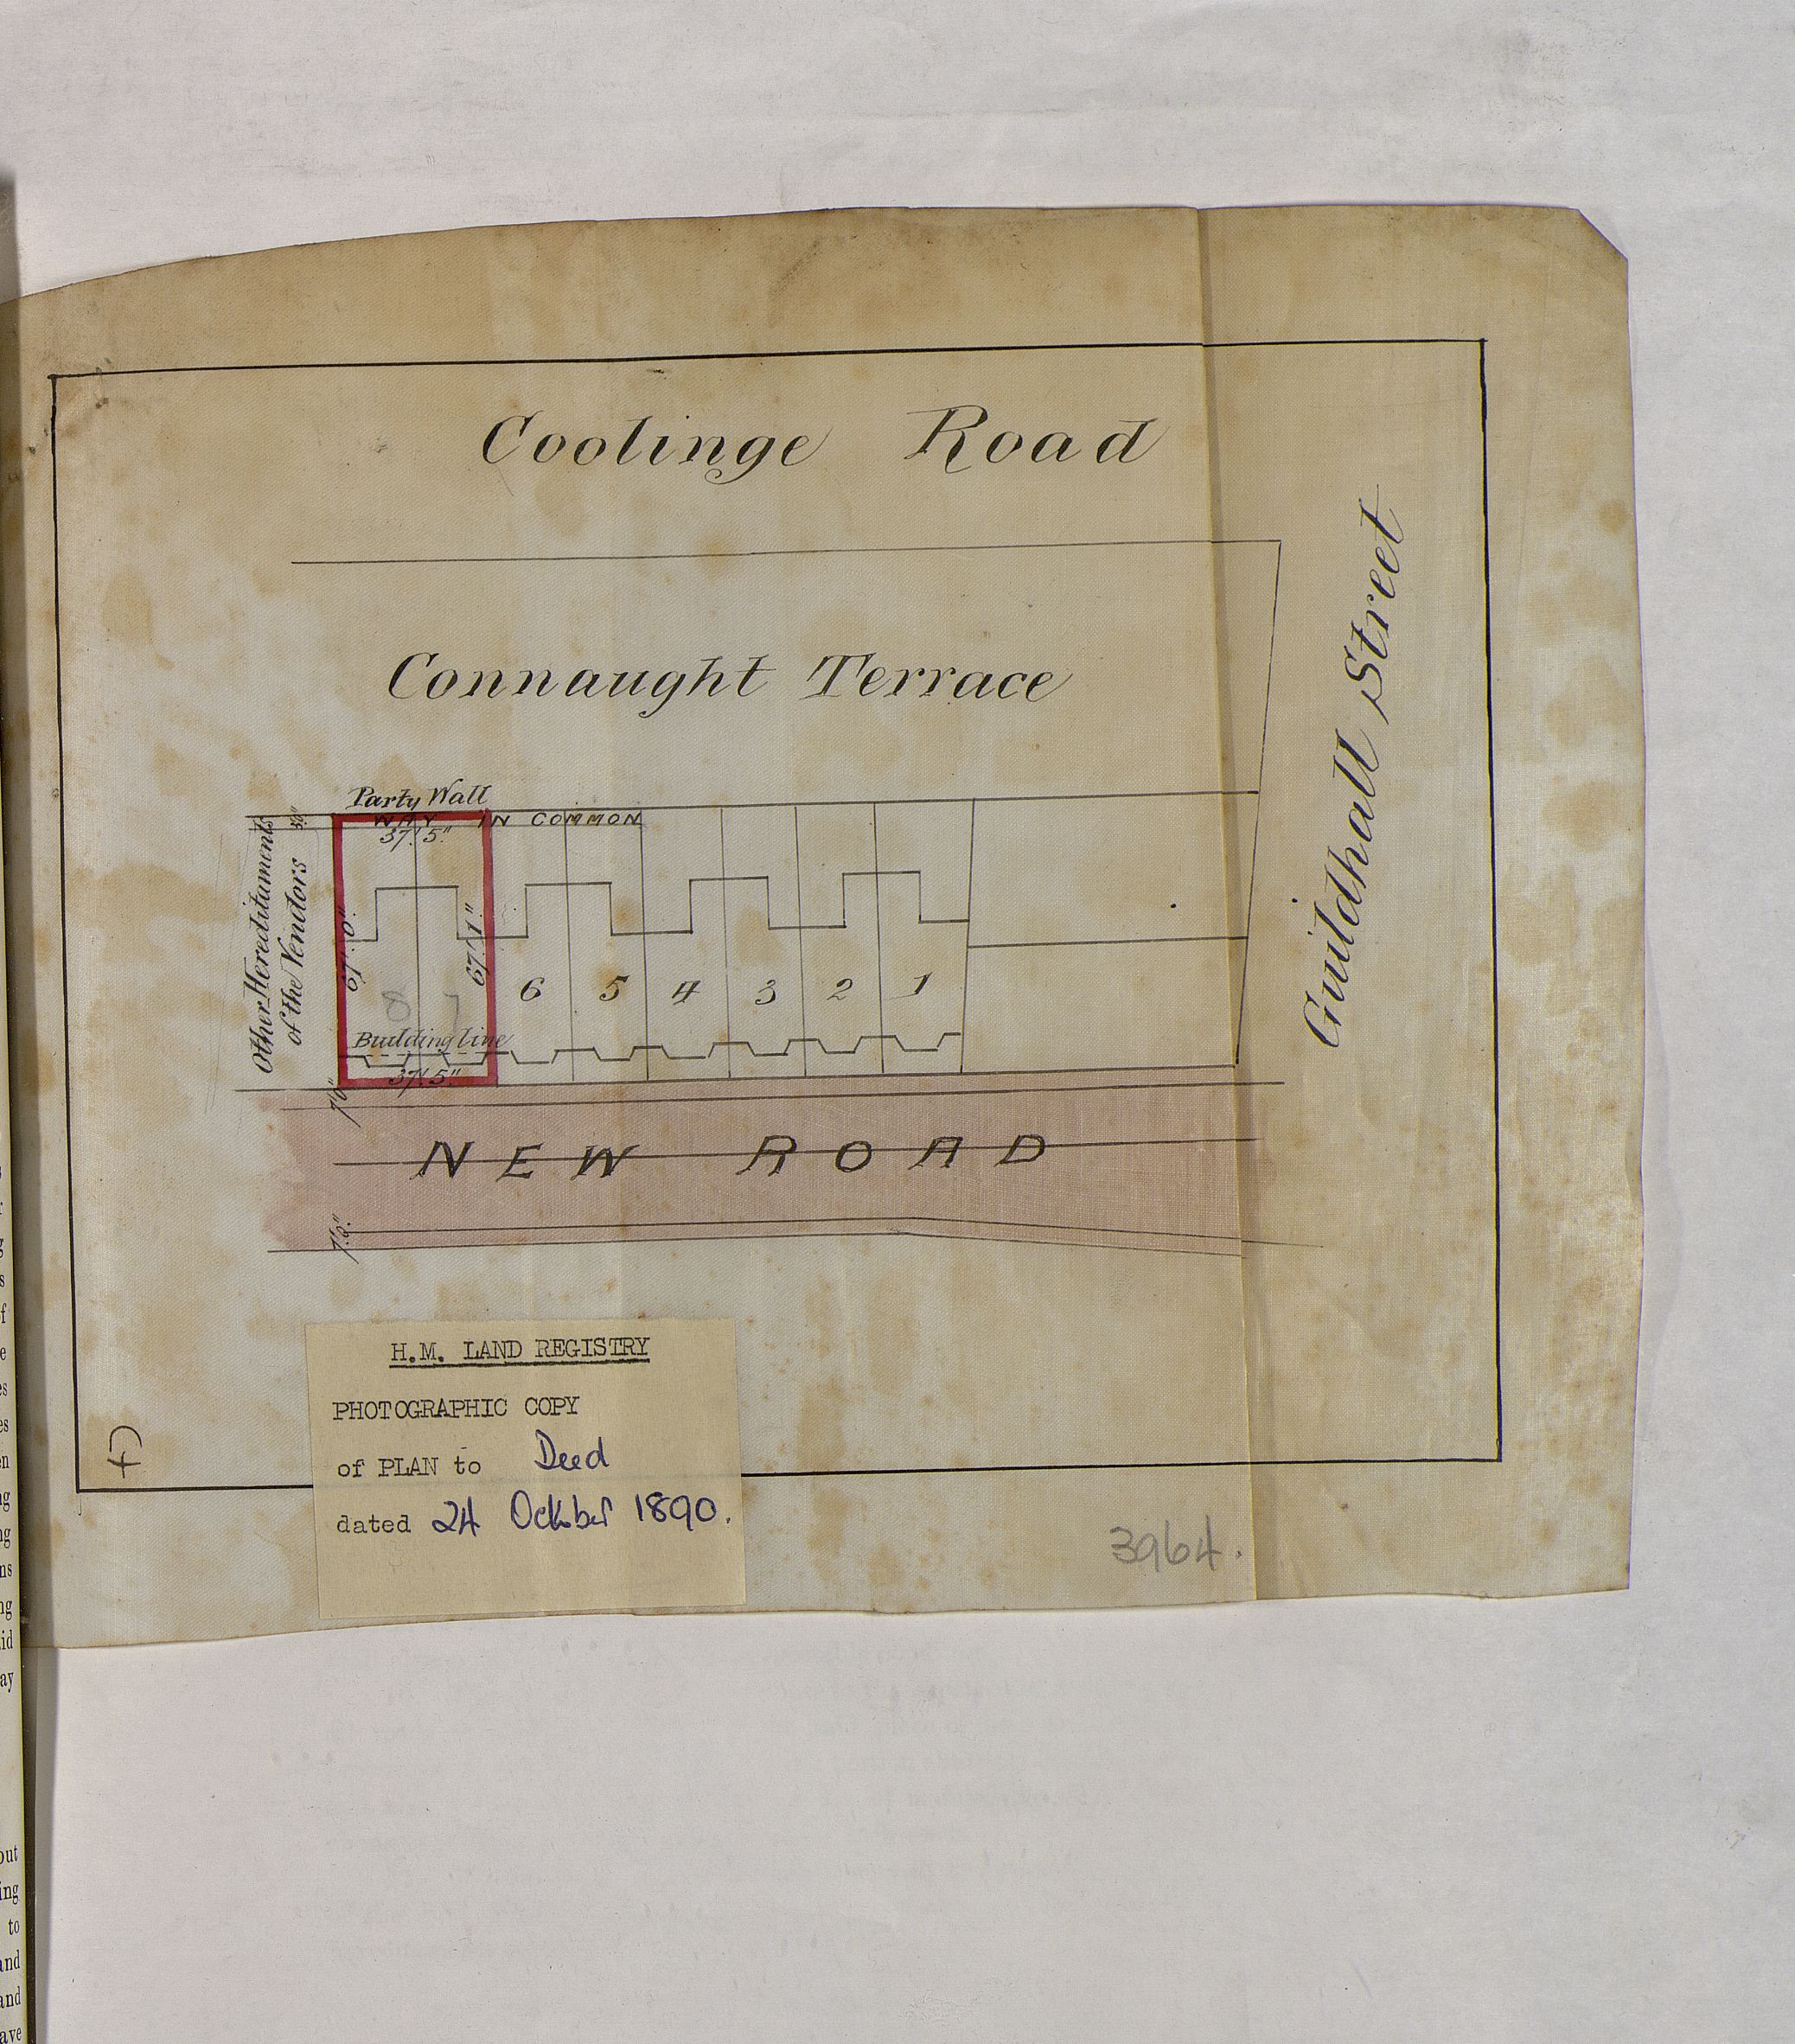 Coolinge Road
Connaught Terrace
Guildhall Street
Party Wall
WAY IN COMMON
37'.5"
Other Hereditaments
of the Vendors
67'.0"
67'.1"
8 7 6 5 4 3 2 1
Building line
37'.5"
7'.6"
NEW ROAD
H.M. LAND REGISTRY
PHOTOGRAPHIC COPY
of PLAN to Deed
dated 24 October 1890.
3964.